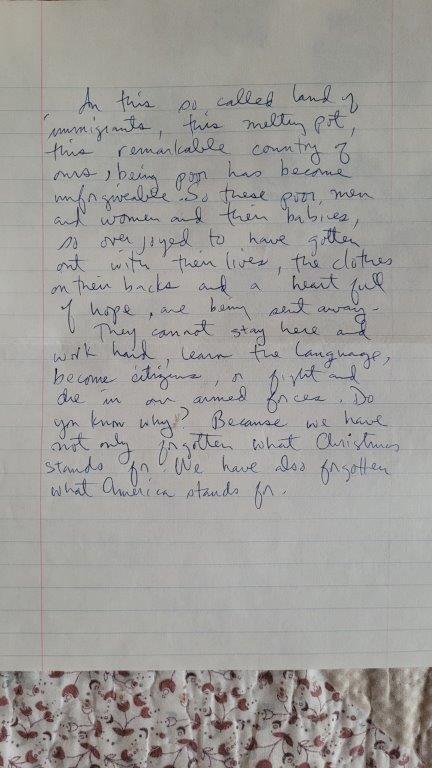 In this so called land of
immigrants, this melting pot,
this remarkable country of
ours, being poor has become
unforgiveable. So these poor, men
and women and their babies,
so over joyed to have gotten
out with their lives, the clothes
on their backs and a heart full
of hope, are being sent away.
They cannot stay here and
work hard, learn the language,
become citizens, or fight and
die in our armed forces. Do
you know why? Because we have
not only forgotten what Christmas
stands for. We have also forgotten
what America stands for.